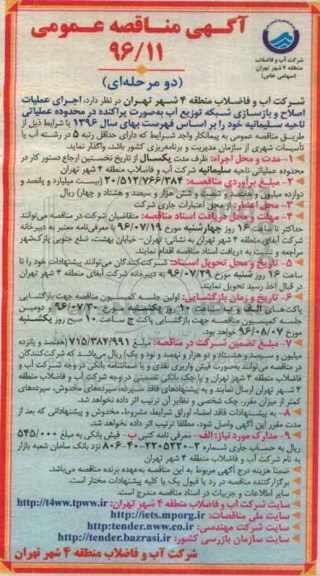 آگهی مناقصه عمومی
۹۶/۱۱
(دو مرحله‌ای)
شرکت آب و فاضلاب
منطقه ۴ شهر تهران
(سهامی خاص)
شرکت آب و فاضلاب منطقه ۴ شهر تهران در نظر دارد، اجرای عملیات
اصلاح و بازسازی شبکه توزیع آب به‌صورت پراکنده در محدوده عملیاتی
ناحیه سلیمانیه خود را بر اساس فهرست بهای سال ۱۳۹۶ با شرایط ذیل از
طریق مناقصه عمومی به پیمانکار واجد شرایط که دارای حداقل رتبه ۵ در رشته آب یا
تأسیسات شهری از سازمان مدیریت و برنامه‌ریزی کشور باشد، واگذار نماید.
۱- مدت و محل اجراء: ظرف مدت یکسال از تاریخ نخستین ارجاع دستور کار در
محدوده عملیاتی ناحیه سلیمانیه شرکت آب و فاضلاب منطقه ۴ شهر تهران
۲- مبلغ برآوردی مناقصه: (بیست میلیارد و پانصد و
دوازده میلیون و هفتصد و شصت و شش هزار و سیصد و هشتاد و ریال)
۳- محل اعتبار: از محل اعتبارات جاری شرکت
۴- مهلت و محل دریافت اسناد مناقصه: متقاضیان شرکت در مناقصه می‌توانند
حداکثر تا ساعت ۱۶ روز چهارشنبه مورخ ۹۶/۰۷/۱۹ با معرفی‌نامه معتبر به دبیرخانه
شرکت آبفای منطقه ۴ شهر تهران به نشانی: تهران- خیابان بهشت، ضلع جنوبی پارک‌شهر
مراجعه و نسبت به دریافت اسناد مناقصه اقدام نمایند.
۵- تاریخ و محل تحویل اسناد: شرکت‌کنندگان می‌توانند پیشنهادات خود را تا
ساعت ۱۶ روز شنبه مورخ ۹۶/۰۷/۲۹ به دبیرخانه شرکت آبفای منطقه ۴ شهر تهران
در قبال اخذ رسید تحویل نمایند.
۶- تاریخ و زمان بازگشایی: اولین جلسه کمیسیون مناقصه جهت بازگشایی
پاکت‌های الف و ب ساعت ۱۰ روز یکشنبه مورخ ۹۶/۰۷/۳۰ و دومین
جلسه کمیسیون مناقصه جهت بازگشایی پاکت ج ساعت ۱۰ صبح روز یکشنبه
مورخ ۹۶/۰۸/۰۷ خواهد بود.
۷- مبلغ تضمین شرکت در مناقصه: مبلغ ۷۱۵/۳۸۲/۹۹۱ (هفتصد و پانزده
میلیون و سیصد و هشتاد و دو هزار و نهصد و نود و یک) ریال می‌باشد که شرکت‌کنندگان
در مناقصه می‌توانند بصورت فیش واریزی نقدی و یا ضمانتنامه بانکی در وجه شرکت آب و
فاضلاب منطقه ۴ شهر تهران
۴ شهر تهران ارسال نمایند و به پیشنهادهای فاقد سپرده، سپرده‌های مخدوش، سپرده‌های
کمتر از میزان مقرر، چک شخصی و نظایر آن ترتیب اثر داده نخواهد شد.
۸- به پیشنهادات فاقد امضاء اوراق شرایط، مشروط، مخدوش و پیشنهاداتی که بعد از
مدت مقرر این آگهی واصل شود، مطلقا ترتیب اثر داده نخواهد شد.
۹- مدارک مورد نیاز: الف- معرفی نامه کتبی ب- فیش بانکی به مبلغ ۵۴۵/۰۰۰
ریال به حساب جاری شماره نزد بانک سامان شعبه بازار
به نام شرکت آب و فاضلاب منطقه ۴ شهر تهران
ضمنا هزینه درج آگهی مربوط به این مناقصه به‌عهده برنده مناقصه می‌باشد.
برگزارکننده مناقصه در رد یا قبول یک یا کلیه پیشنهادات مختار است.
سایر اطلاعات و جزییات در اسناد مناقصه مندرج است.
سایت شرکت آب و فاضلاب منطقه ۴ شهر تهران: http://t4ww.tpww.ir
سایت ملی مناقصات: http://iets.mporg.ir
سایت شرکت مهندسی: http:tender.nww.co.ir
سایت سازمان بازرسی کشور: http://tender.bazrasi.ir
شرکت آب و فاضلاب منطقه ۴ شهر تهران